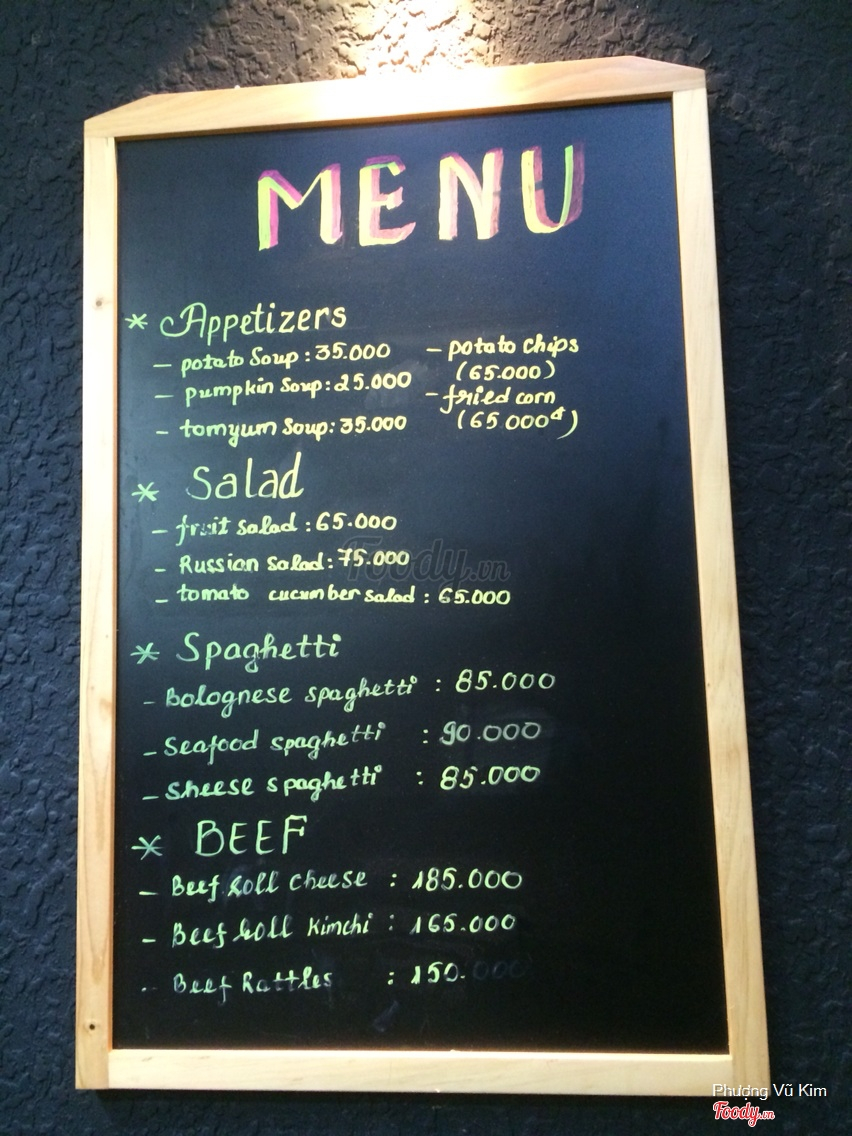 MENU
* Appetizers
- potato Soup : 35.000
- pumpkin Soup : 25.000
- tomyum Soup : 35.000
- potato chips
(65.000)
- fried corn
(65.000đ)
* Salad
- fruit salad : 65.000
- Russian Salad : 75.000
- tomato cucumber salad : 65.000
* Spaghetti
- Bolognese spaghetti : 85.000
- Seafood spaghetti : 90.000
- Sheese spaghetti : 85.000
* BEEF
- Beef Roll Cheese : 185.000
- Beef Roll Kimchi : 165.000
- Beef Rattles : 150.000
Foody.vn
Phượng Vũ Kim
Foody.vn